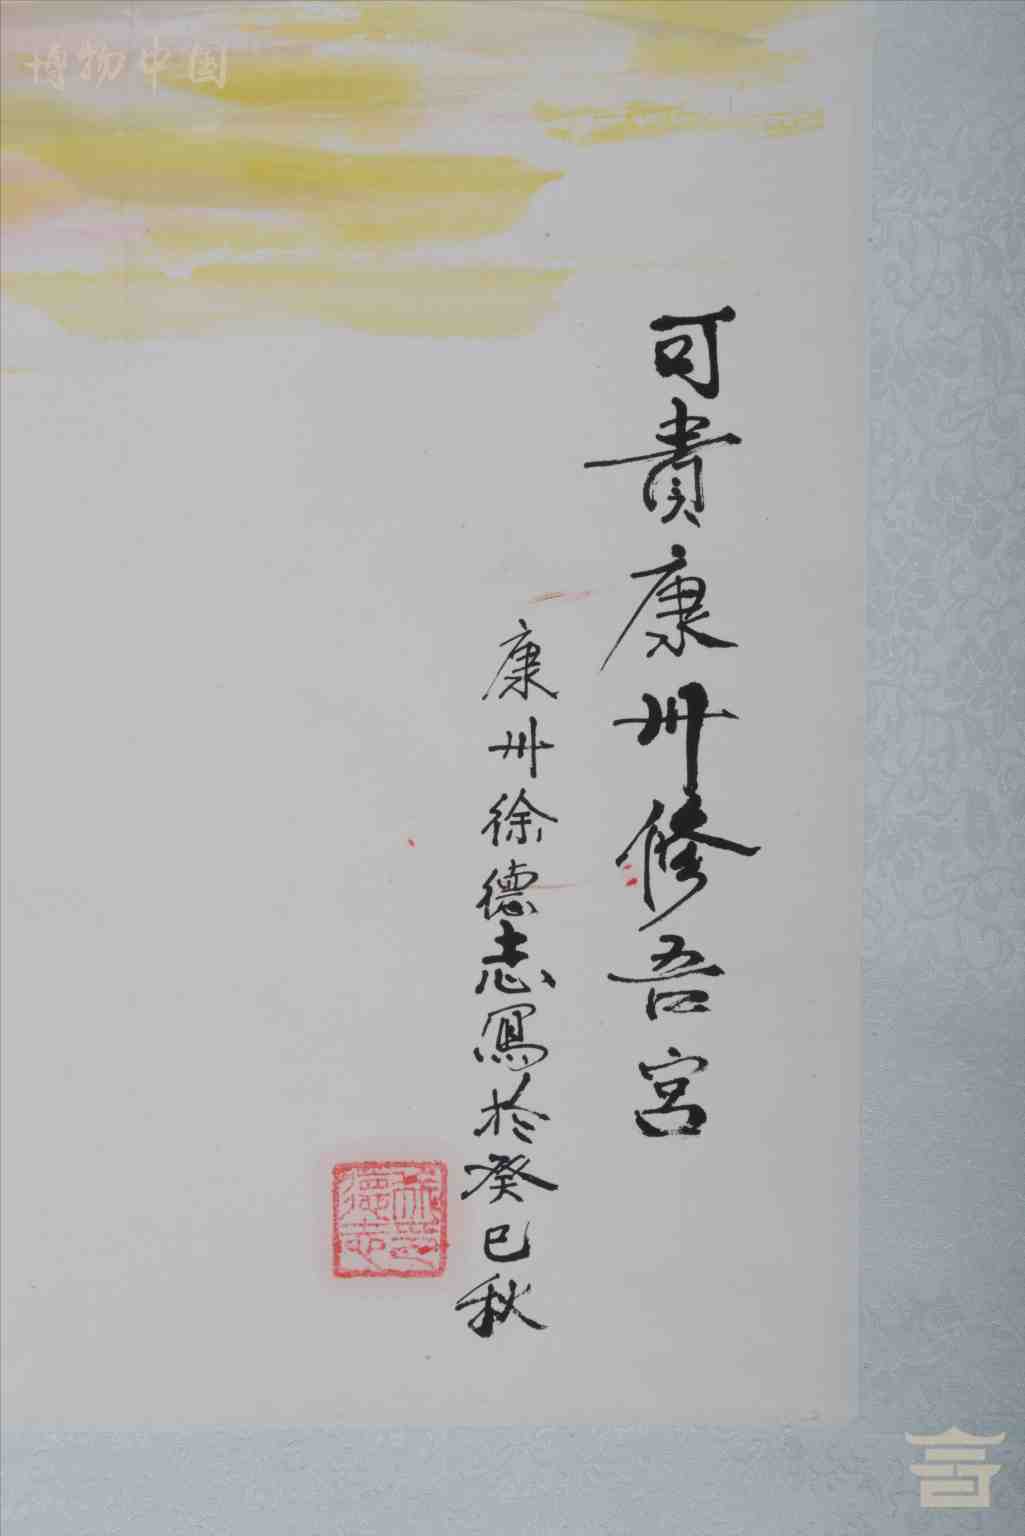 博物中国
可貴康州修吾宮
康州徐德志寫於癸巳秋
徐
德志